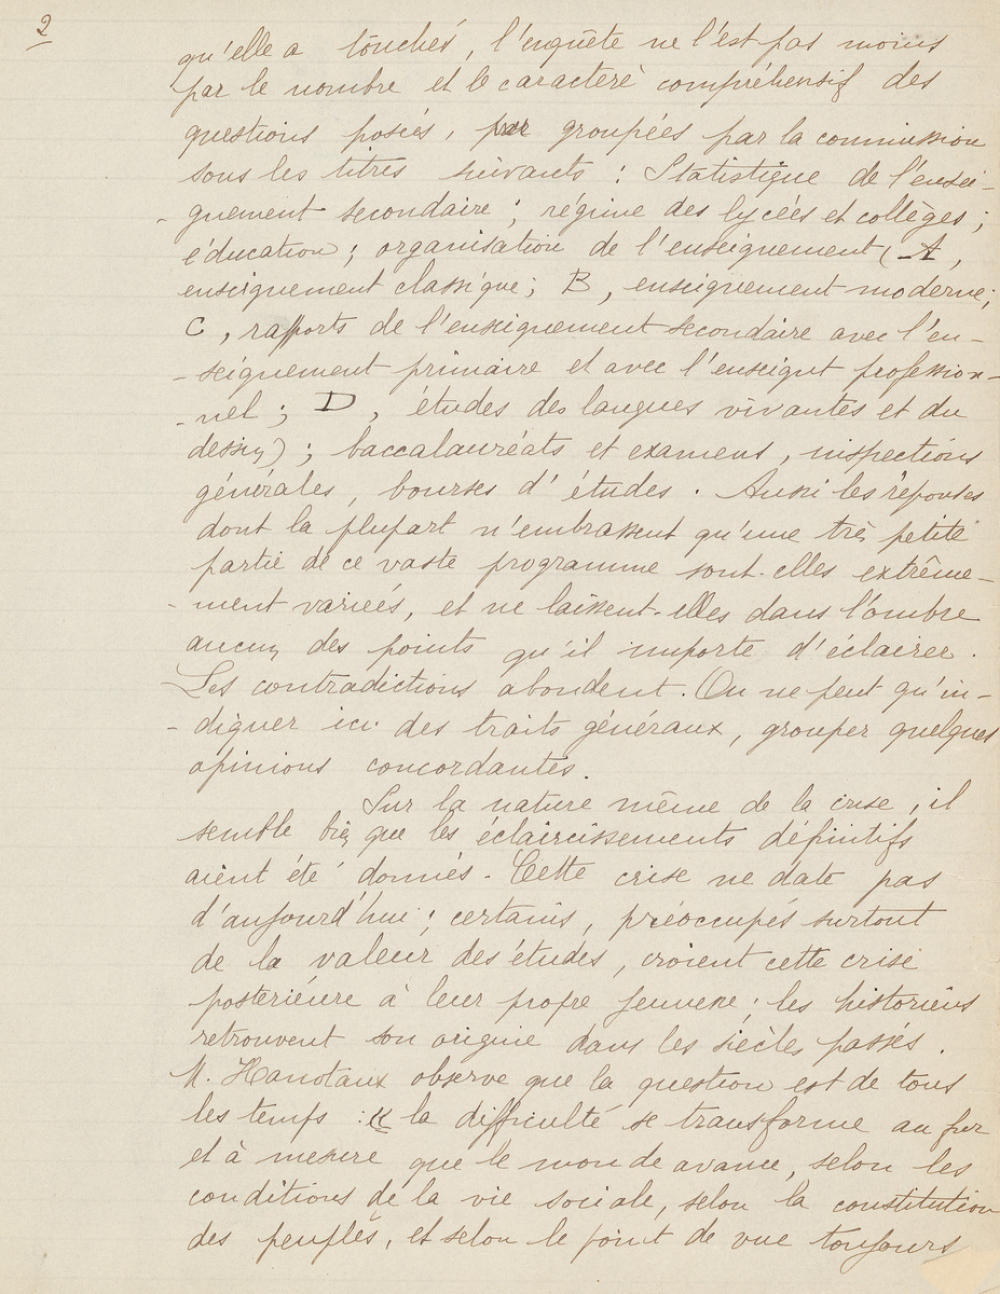 2
qu'elle a touchés, l'enquête ne l'est pas moins
par le nombre et le caractère compréhensif des
questions posées, par groupées par la commission
sous les titres suivants : Statistique de l'ensei-
- gnement secondaire ; régime des lycées et collèges ;
éducation ; organisation de l'enseignement (A,
enseignement classique ; B, enseignement moderne ;
C, rapports de l'enseignement secondaire avec l'en-
- seignement primaire et avec l'enseignt profession-
- nel ; D, études des langues vivantes et du
dessin) ; baccalauréats et examens, inspections
générales, bourses d'études. Aussi les réponses
dont la plupart n'embrassent qu'une très petite
partie de ce vaste programme sont-elles extrême-
- ment variées, et ne laissent-elles dans l'ombre
aucun des points qu'il importe d'éclairer.
Les contradictions abondent. On ne peut qu'in-
- diquer ici des traits généraux, grouper quelques
opinions concordantes.
Sur la nature même de la crise, il
semble bien que les éclaircissements définitifs
aient été donnés. Cette crise ne date pas
d'aujourd'hui ; certains, préoccupés surtout
de la valeur des études, croient cette crise
postérieure à leur propre jeunesse ; les historiens
retrouvent son origine dans les siècles passés.
M. Hanotaux observe que la question est de tous
les temps : « la difficulté se transforme au fur
et à mesure que le monde avance, selon les
conditions de la vie sociale, selon la constitution
des peuples, et selon le point de vue toujours